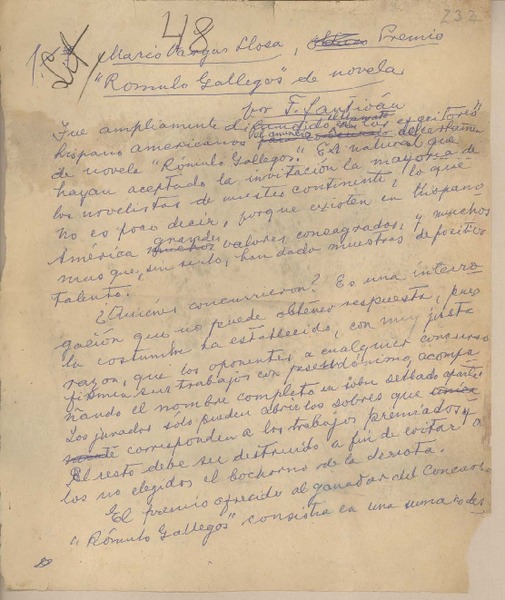 232
48
1
Mario Vargas Llosa, Premio
"Romulo Gallegos" de novela
por F. Santiván
Fue ampliamente difundido entre los escritores
hispano americanos el certamen
de novela "Rómulo Gallegos". Es natural que
hayan aceptado la invitación la mayoría de
los novelistas de nuestro continente, lo que
no es poco decir, porque existen en Hispano
América grandes valores consagrados, y muchos
mas que, sin serlo, han dado muestras de positivo
talento.
¿Quiénes concurrieron? Es una interro
gación que no puede obtener respuesta, pues
la costumbre ha establecido, con muy justa
razon, que los oponentes a cualquier concurso
firmen sus trabajos con pseudónimo, acompa
ñando el nombre completo en sobre sellado aparte.
Los jurados sólo pueden abrir los sobres que
corresponden a los trabajos premiados y
el resto debe ser destruído a fin de evitar a
los no elegidos el bochorno de la derrota.
El premio ofrecido al ganador del Concurso
"Rómulo Gallegos" consistia en una suma